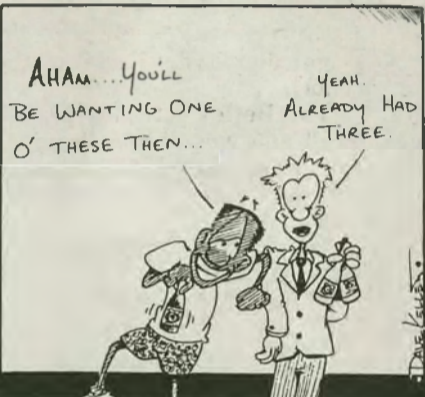 AHAM.... YOU'LL
BE WANTING ONE
O' THESE THEN...
YEAH.
ALREADY HAD
THREE.
DAVE KELLETT